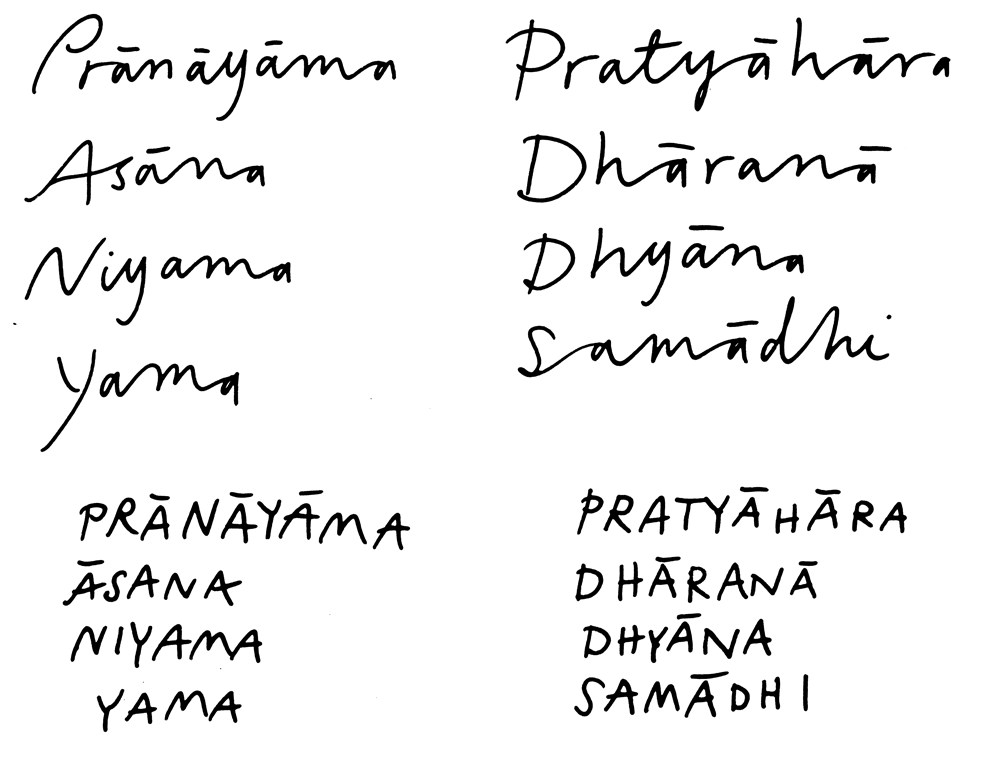 Prānāyāma
Asāna
Niyama
Yama
Pratyāhāra
Dhāranā
Dhyāna
Samādhi
PRĀNĀYĀMA
ĀSANA
NIYAMA
YAMA
PRATYĀHĀRA
DHĀRANĀ
DHYĀNA
SAMĀDHI